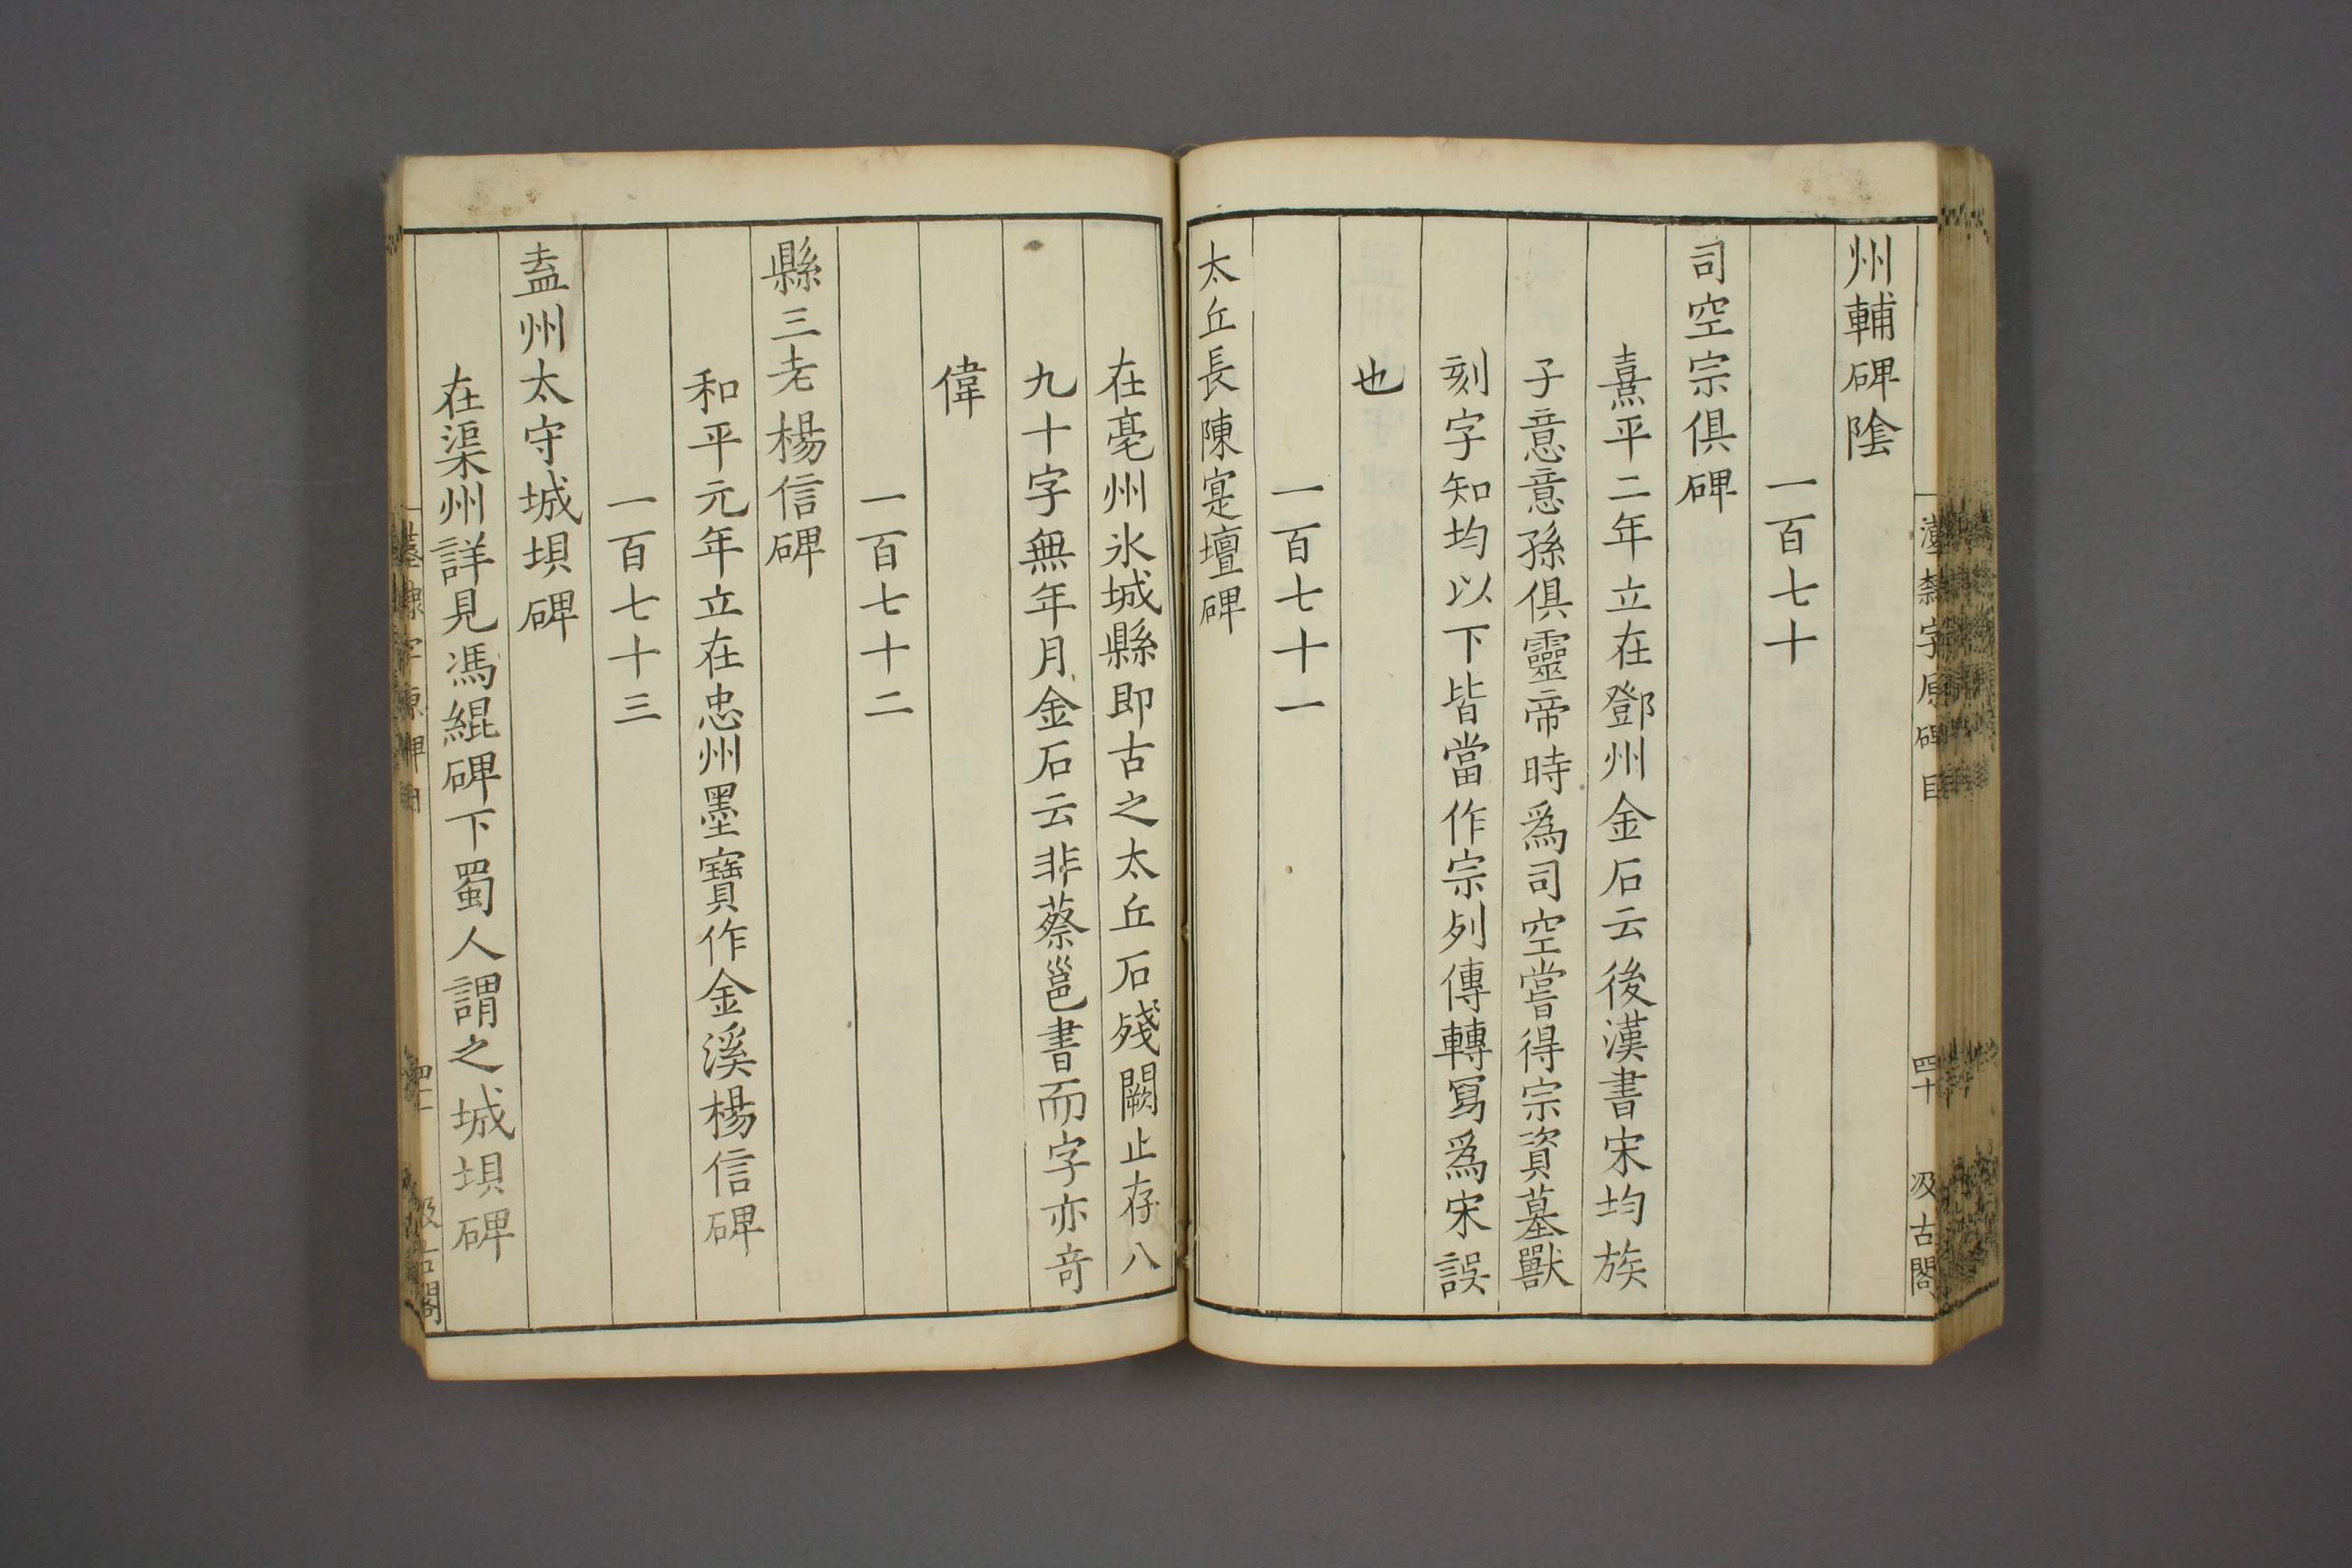 州輔碑陰
一百七十
司空宗俱碑
熹平二年立在鄧州金石云後漢書宋均族
子意意孫俱靈帝時爲司空嘗得宗資墓獸
刻字知均以下皆當作宗列傳轉寫爲宋誤
也
一百七十一
太丘長陳寔壇碑
漢隸字原碑目
四十
汲古閣
在亳州永城縣即古之太丘石殘闕止存八
九十字無年月金石云非蔡邕書而字亦奇
偉
一百七十二
縣三老楊信碑
和平元年立在忠州墨寶作金溪楊信碑
一百七十三
益州太守城垻碑
在渠州詳見馮緄碑下蜀人謂之城垻碑
汲古閣